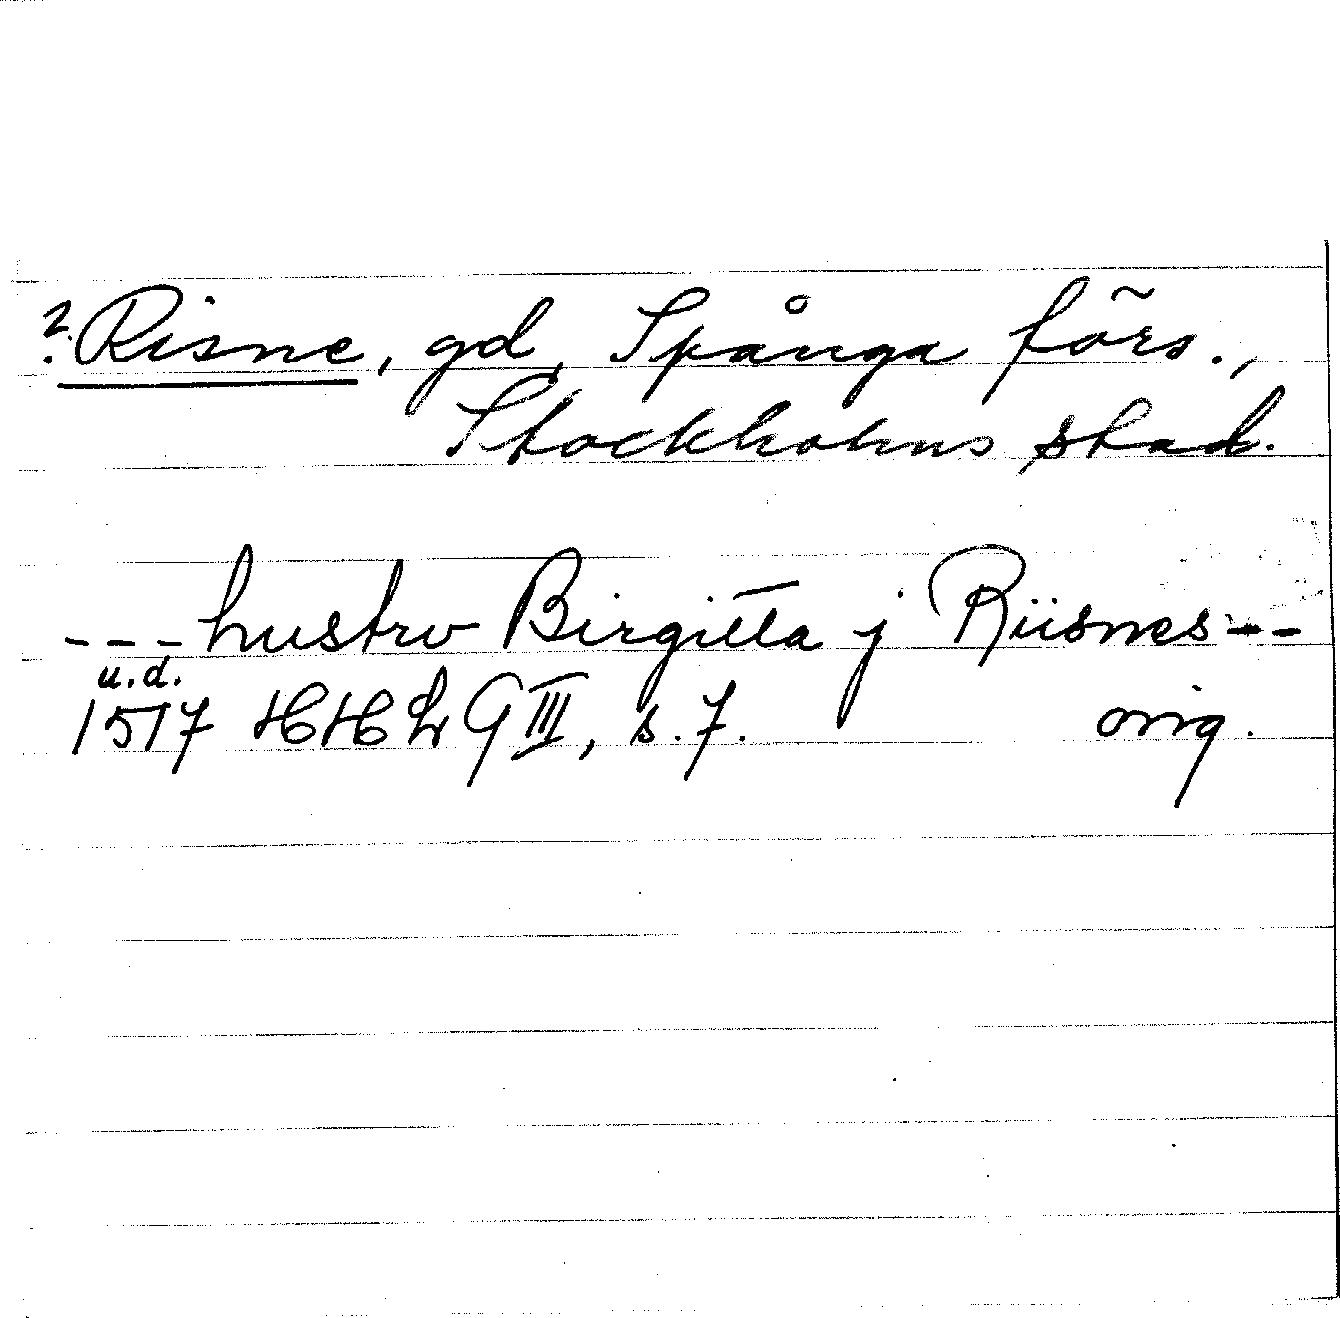 ? Risne, gd, Spånga förs.,
Stockholms stad.
--- hustrv Birgitta j Riisnes --
u.d.
1517 HHLG III, s. 7. orig.